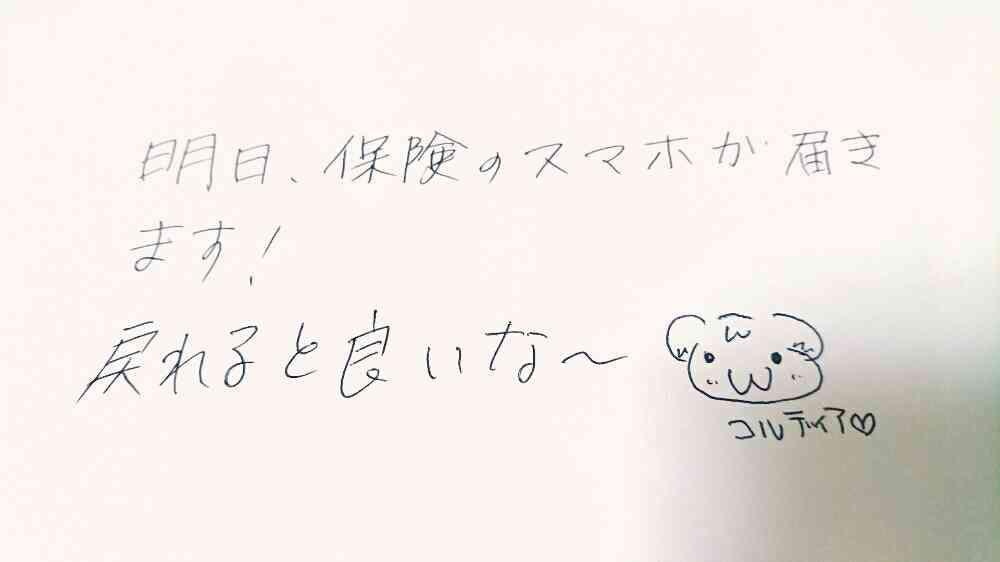 明日、保険のスマホが届き
ます!
戻れると良いな〜
コルディア♡